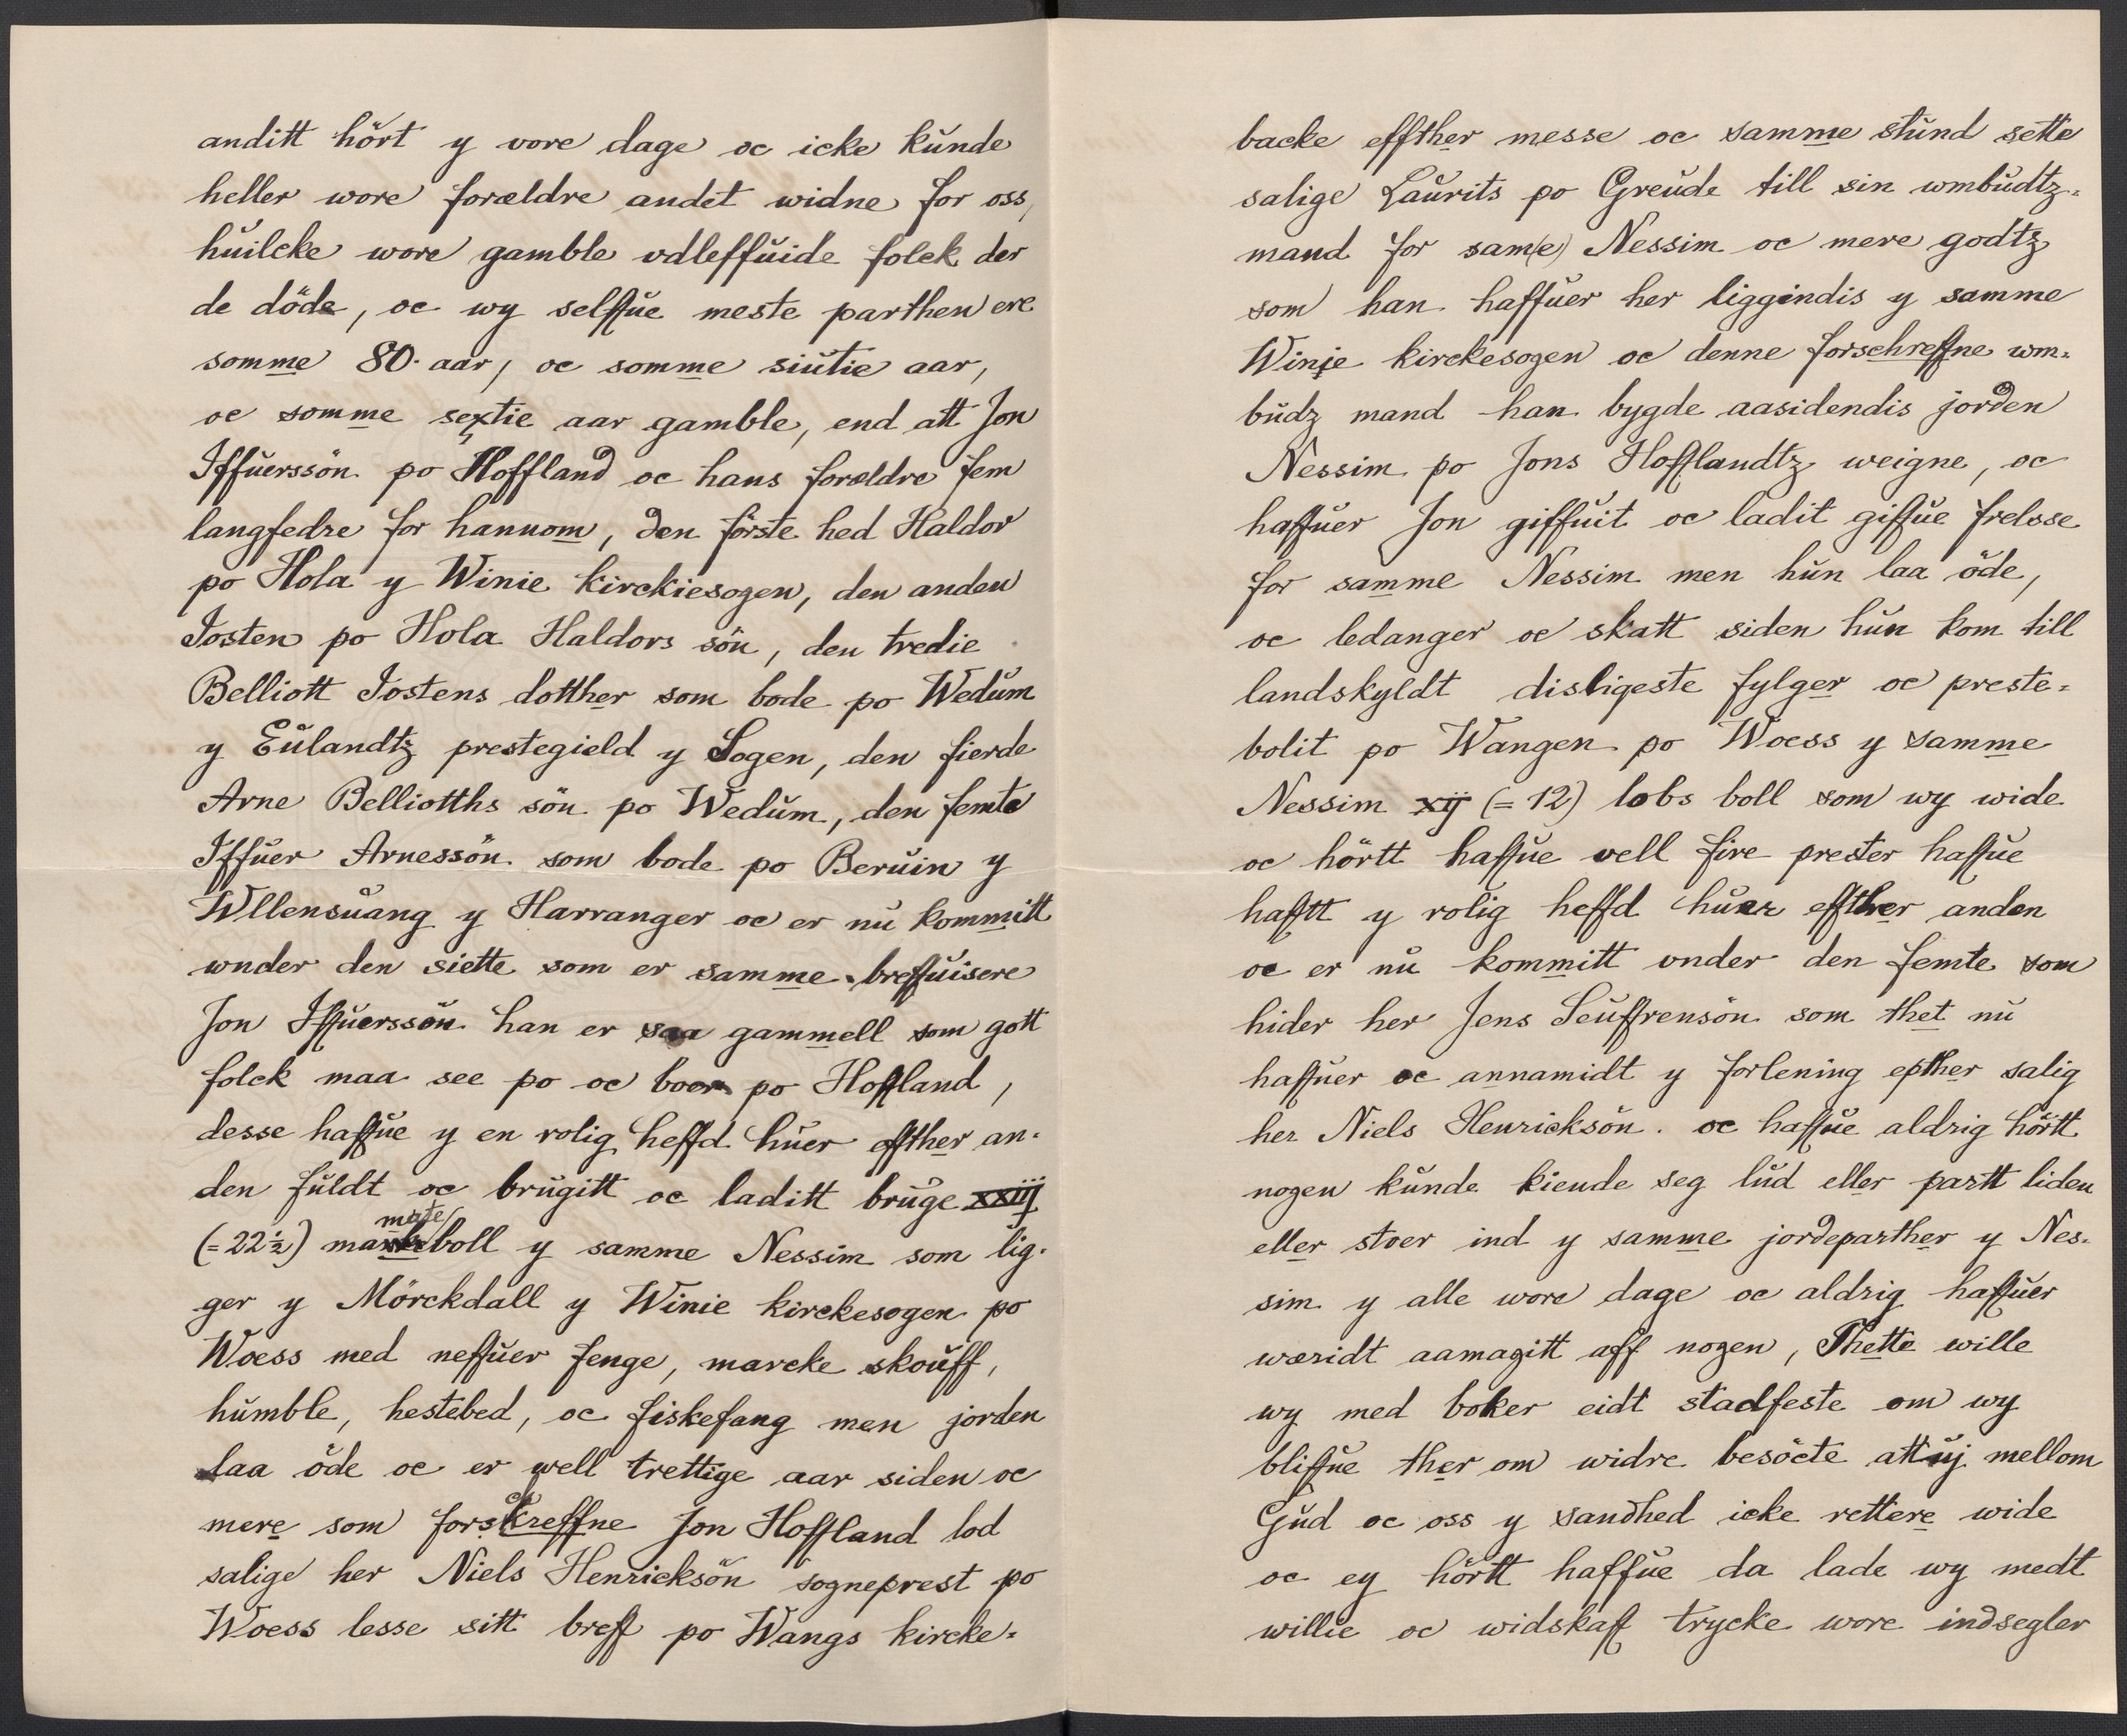 anditt hört y vore dage oc icke kunde
heller wore forældre andet widne for oss,
huilcke wore gamble vdleffuide folck der
de döde, oc wy selffue meste parthen ere
somme 80. aar, oc somme siutie aar,
oc somme sextie aar gamble, end att Jon
Iffuerssön po Hoffland oc hans forældre fem
langfedre for hannom, den förste hed Haldor
po Hola y Winie kirckiesogen, den anden
Josten po Hola Haldors sön, den tredie
Belliott Jostens dotther som bode po Wedum
y Eulandtz prestegield y Sogen, den fierde
Arne Belliotths sön po Wedum, den femte
Iffuer Arnessön som bode po Beruin y
Wllensuang y Harranger oc er nu kommitt
wnder den siette som er samme breffuisere
Jon Iffuerssön han er saa gammell som gott
folck maa see po oc boer po Hoffland,
desse haffue y en rolig heffd huer effther an-
den fuldt oc brugitt oc laditt bruge xxiij
(= 22½) mate boll y samme Nessim som lig-
ger y Mörckdall y Winie kirckesogen po
Woess med neffuer fenge, marcke skouff,
humble, hestebed, oc fiskefang men jorden
laa öde oc er well trettige aar siden oc
mere som forskreffne Jon Hoffland lod
salige her Niels Henricksön sogneprest po
Woess lesse sitt breff po Wangs kircke-
backe effther messe oc samme stund sette
salige Laurits po Greude till sin wmbudtz-
mand for sam(e) Nessim oc mere godtz
som han haffuer her liggindis y samme
Winje kirckesogen oc denne forschreffne wm-
budz mand han bygde aasidendis jorden
Nessim po Jons Hofflandtz weigne, oc
haffuer Jon giffuit oc ladit giffue frelsse
for samme Nessim men hun laa öde,
oc ledanger oc skatt siden hun kom till
landskyldt disligeste fylger oc preste-
bolit po Wangen po Woess y samme
Nessim xij (= 12) lobs boll som wy wide
oc hörtt haffue vell fire prester haffue
hafftt y rolig heffd huer effther anden
oc er nu kommitt vnder den femte som
hider her Jens Seuffrensön som thet nu
haffuer oc annamidt y forlening epther salig
her Niels Henricksön. oc haffue aldrig hörtt
nogen kunde kiende seg lud eller partt liden
eller stoer ind y samme jordeparther y Nes-
sim y alle wore dage oc aldrig haffuer
wæridt aamagitt aff nogen, Thette wille
wy med boker eidt stadfeste om wy
bliffue ther om widre besöcte att uj mellom
Gud oc oss y sandhed icke rettere wide
oc ey hörtt haffue da lade wy medt
willie oc widskaff trycke wore indsegler